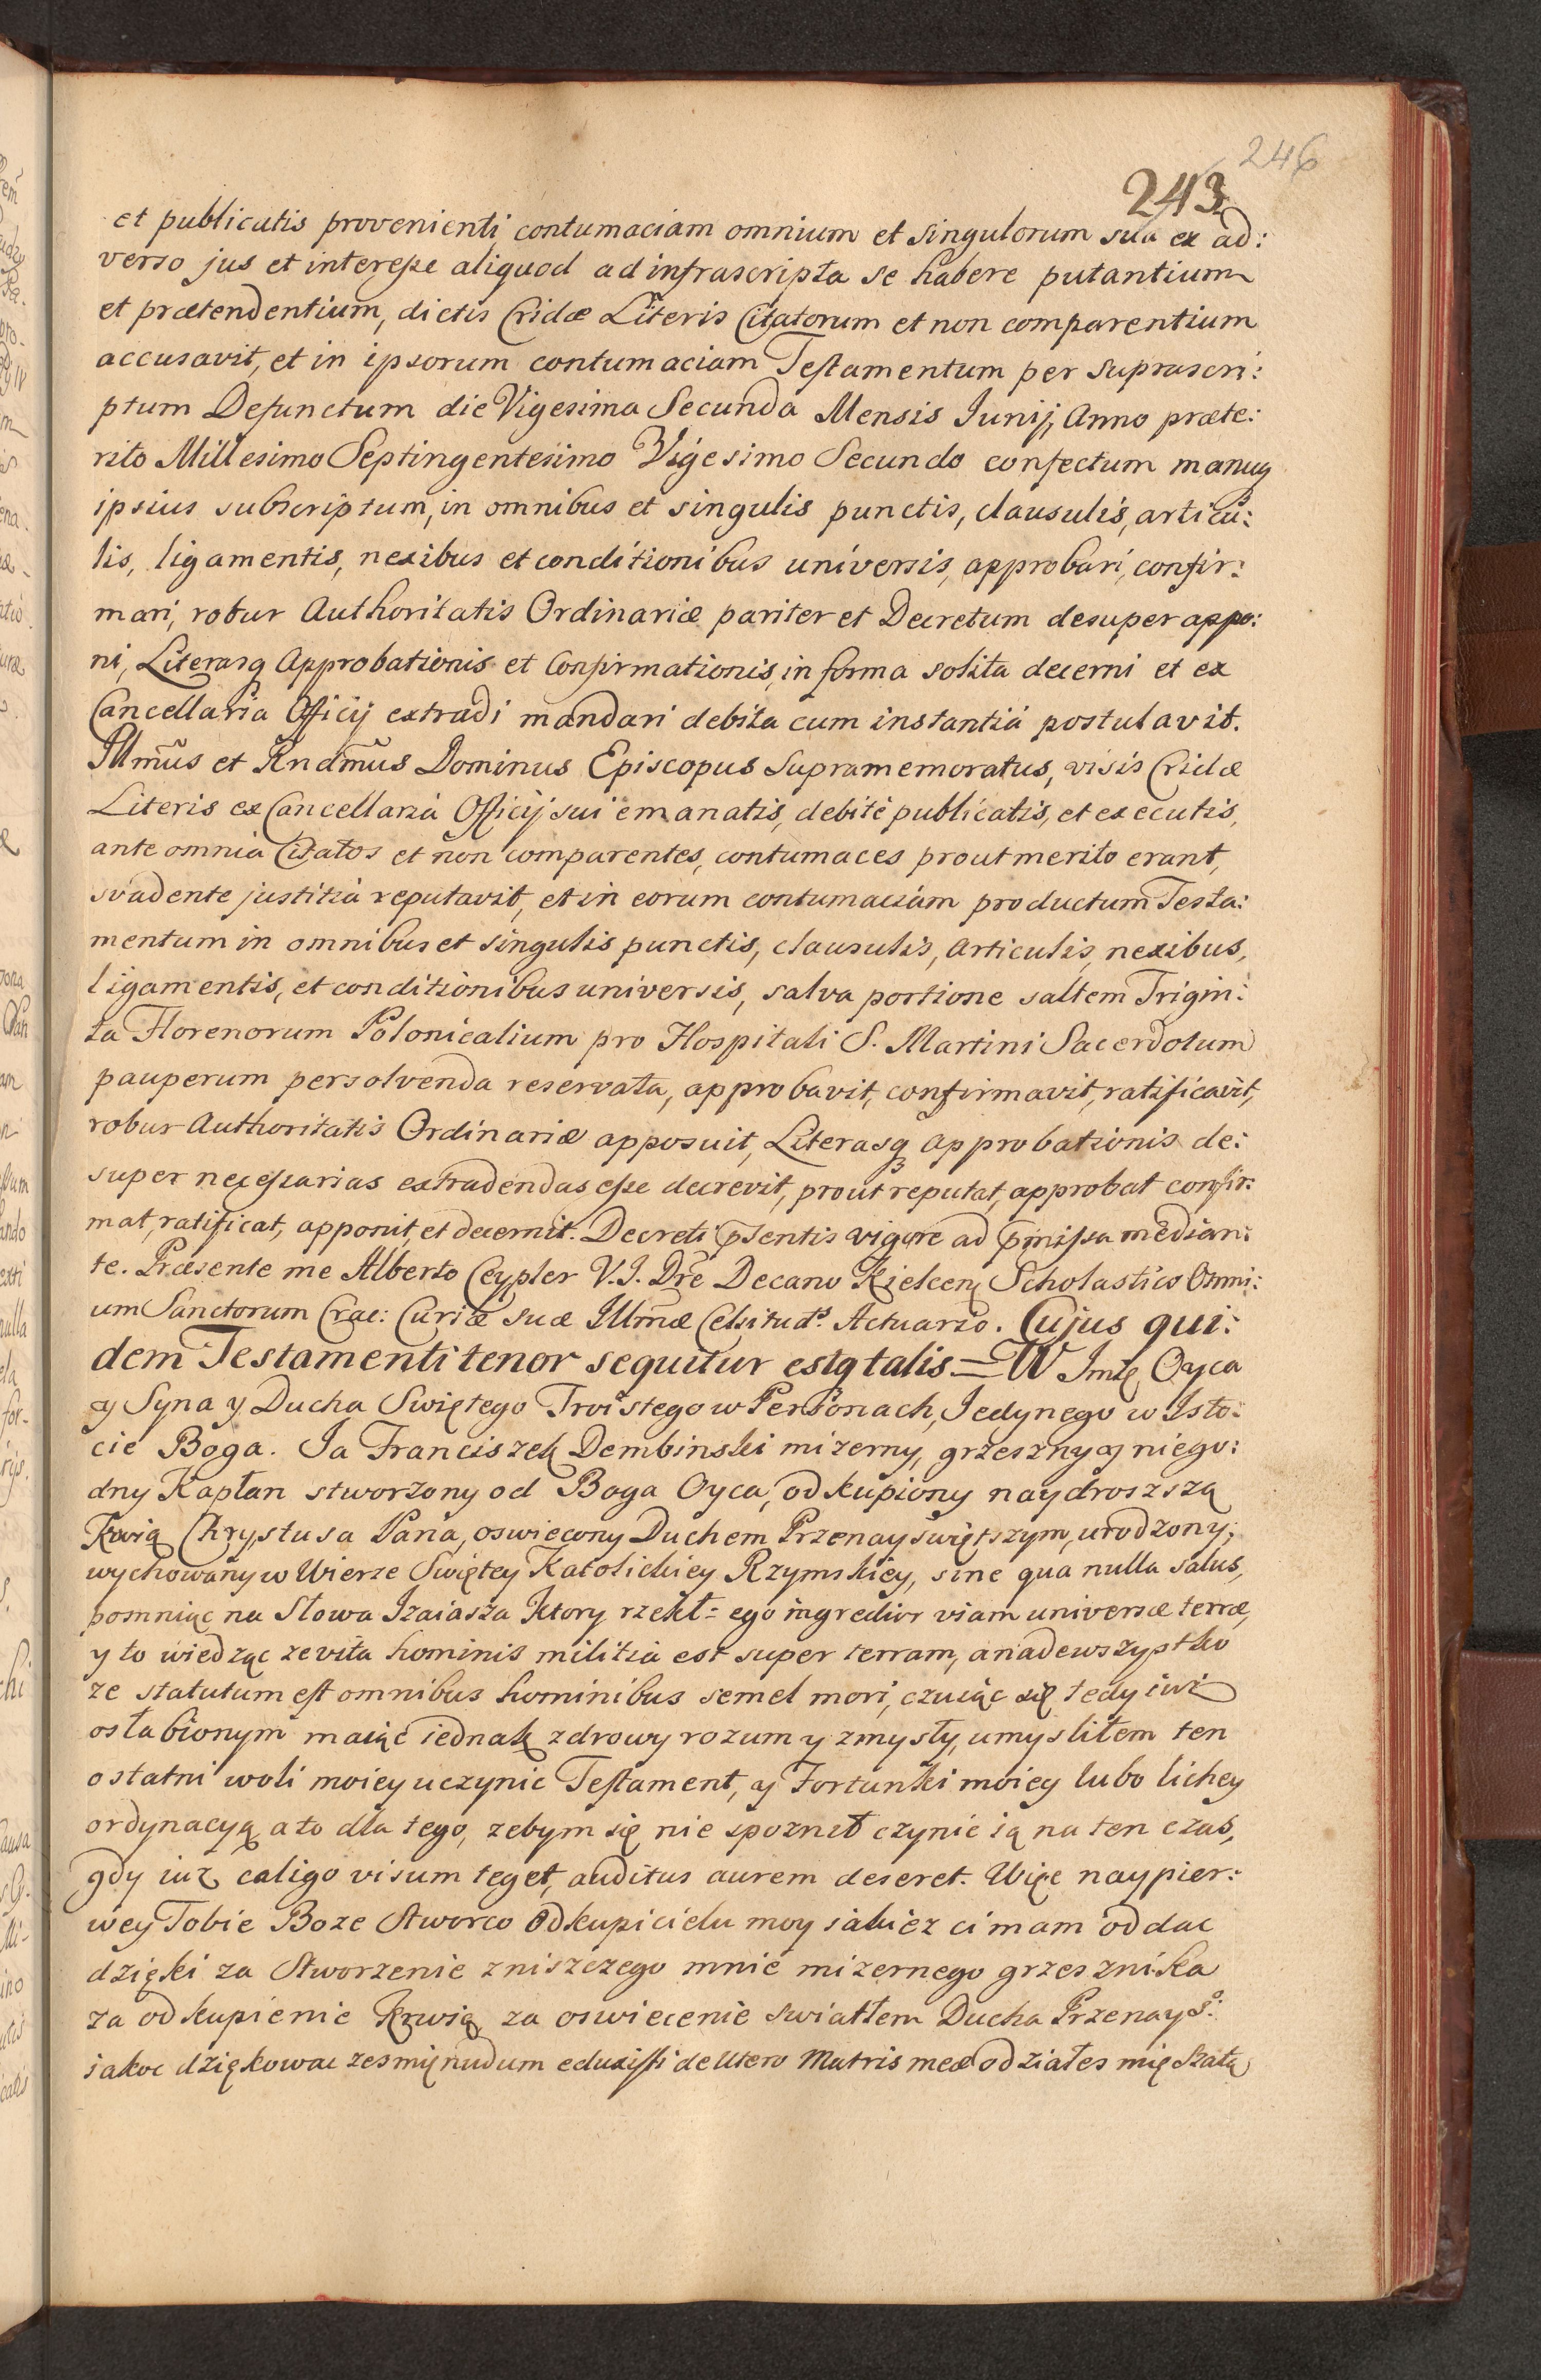 246
243
et publicatis provenienti contumaciam omnium et singulorum sua ex ad:
verso jus et interesse aliquod ad infrascripta se habere putantium
et prætendentium, dictis Cridæ Literis Citatorum et non comparentium
accusavit, et in ipsorum contumaciam Testamentum per suprascri:
ptum Defunctum die Vigesima Secunda Mensis Junij, Anno præte:
rito Millesimo Septingentesimo Vigesimo Secundo confectum manuq
ipsius subscriptum, in omnibus et singulis punctis, clausulis, articu:
lis, ligamentis, nexibus et conditionibus universis, approbari, confir:
mari, robur Authoritatis Ordinariæ pariter et Decretum desuper appo:
ni, Literasq Approbationis et Confirmationis, in forma solita decerni et ex
Cancellaria Officij extradi mandari debita cum instantiâ postulavit.
Illmūs et Rndmūs Dominus Episcopus Supramemoratus, visis Cridæ
Literis ex Cancellariâ Officij sui emanatis, debitè publicatis, et executis,
ante omnia Citatos et non comparentes, contumaces prout merito erant,
svadente justitiâ reputavit, et in eorum contumaciam productum Testa:
mentum in omnibus et singulis punctis, clausulis, Articulis, nexibus,
ligamentis, et conditionibus universis, salva portione saltem Trigin:
ta Florenorum Polonicalium pro Hospitali S. Martini Sacerdotum
pauperum persolvenda reservata, approbavit, confirmavit, ratificavit,
robur Authoritatis Ordinariæ apposuit, Literasq approbationis de:
super necessarias extradendas esse decrevit, prout reputat, approbat confir:
mat, ratificat, apponit, et decernit. Decreti psentis vigore ad pmissa median:
te. Præsente me Alberto Ceypler V.J. Dre Decano Kielcen Scholastico Omni:
um Sanctorum Crac: Curiæ suæ Illmæ Celsituds. Actuario. Cujus qui:
dem Testamenti tenor sequitur estq talis = W Imię Oyca
y Syna y Ducha Swiętego Troistego w Personach, Jedynego w Isto:
cie Boga. Ja Franciszek Dembinski mizerny, grzeszny y niego:
dny Kapłan stworzony od Boga Oyca, odkupiony naydroszszą
Krwią Chrystusa Pana, oswiecony Duchem Przenayswiętszym, urodzony,
wychowany w Wierze Swiętey Katolickiey Rzymskiey, sine qua nulla salus,
pomniąc na Słowa Izaiasza Ktory rzekł = ego ingredior viam universæ terræ,
y to wiedząc ze vita hominis militia est super terram, a nadewszystko
ze statutum est omnibus hominibus semel mori, czuiąc się tedy iuż
osłabionym maiąc iednak zdrowy rozum y zmysły, umysliłem ten
ostatni woli moiey uczynic Testament, y Fortunki moiey lubo lichey
ordynacyą, a to dla tego, zebym się nie spoznił czynic ią na ten czas,
gdy iuż caligo visum teget, auditus aurem deseret. Więc naypier:
wey Tobie Boze Stworco Odkupicielu moy iakiez ci mam oddac
dzięki za Stworzenie zniszczego mnie mizernego grzesznika
za odkupienie Krwią, za oswiecenie swiatłem Ducha Przenays.
iakoc dziękowac zes mię nudum eduxisti de Utero Matris meæ odziałes mię szatą